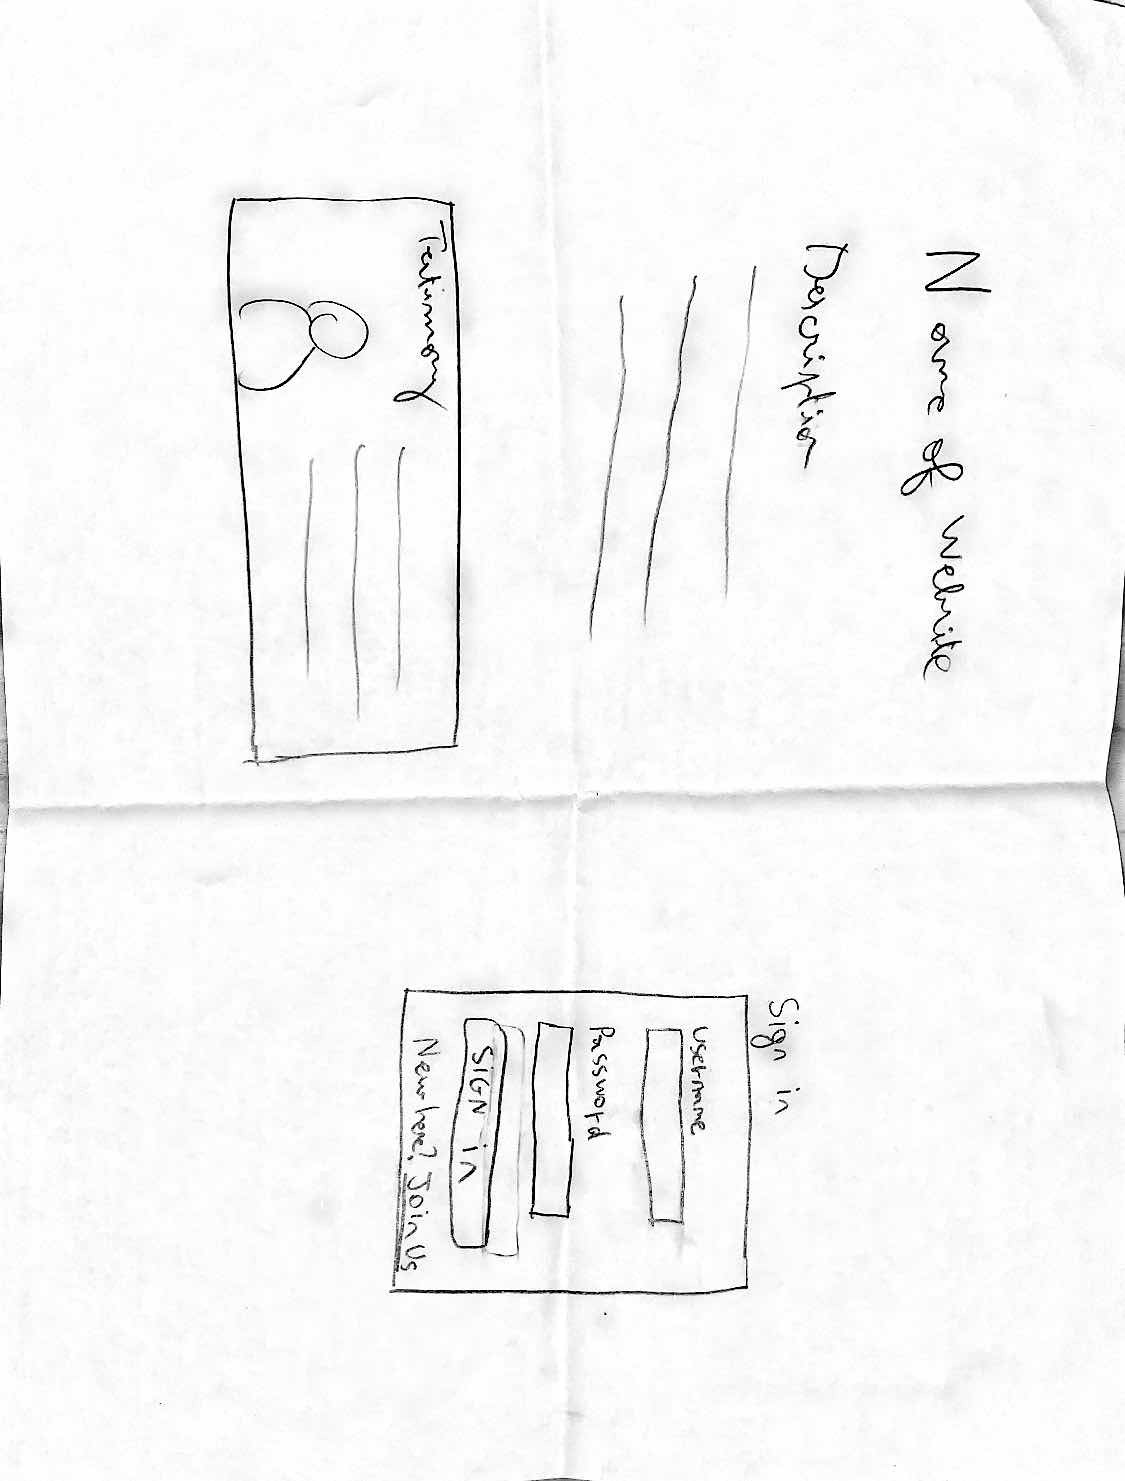 Name of Website
Description
Testimony
Sign in
Username
Password
SIGN in
New here? Join Us